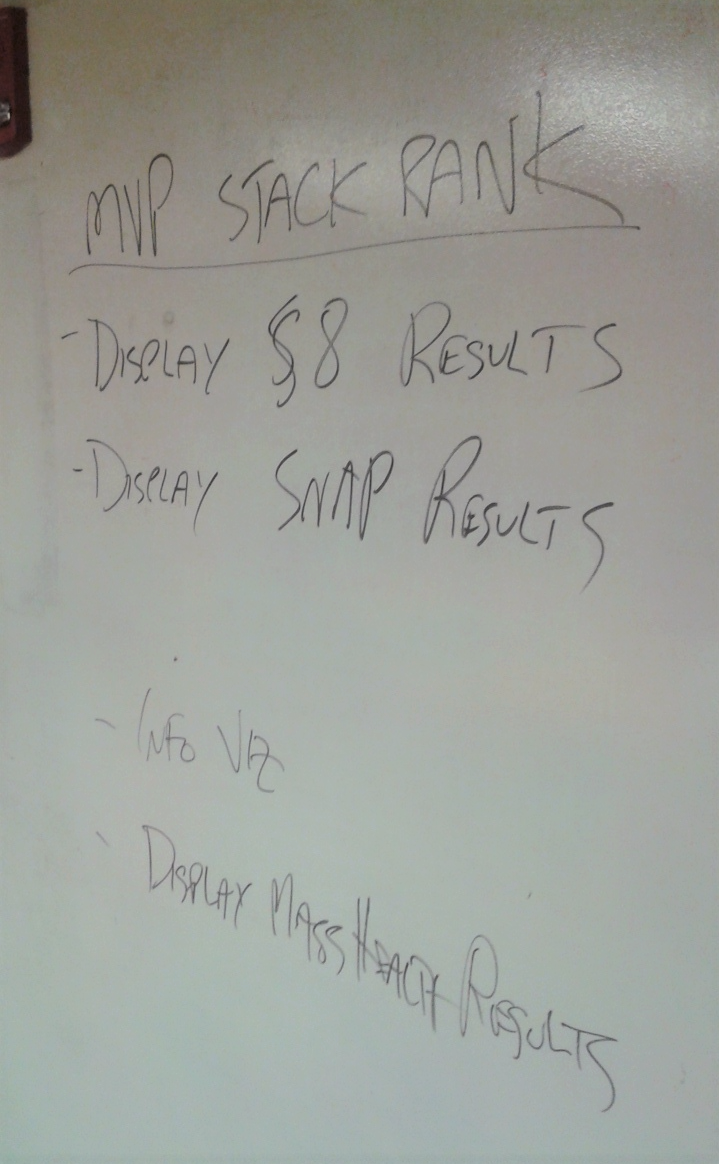 MVP STACK RANK
- DISPLAY §8 RESULTS
- DISPLAY SNAP RESULTS
- INFO VIZ
- DISPLAY MASSHEALTH RESULTS